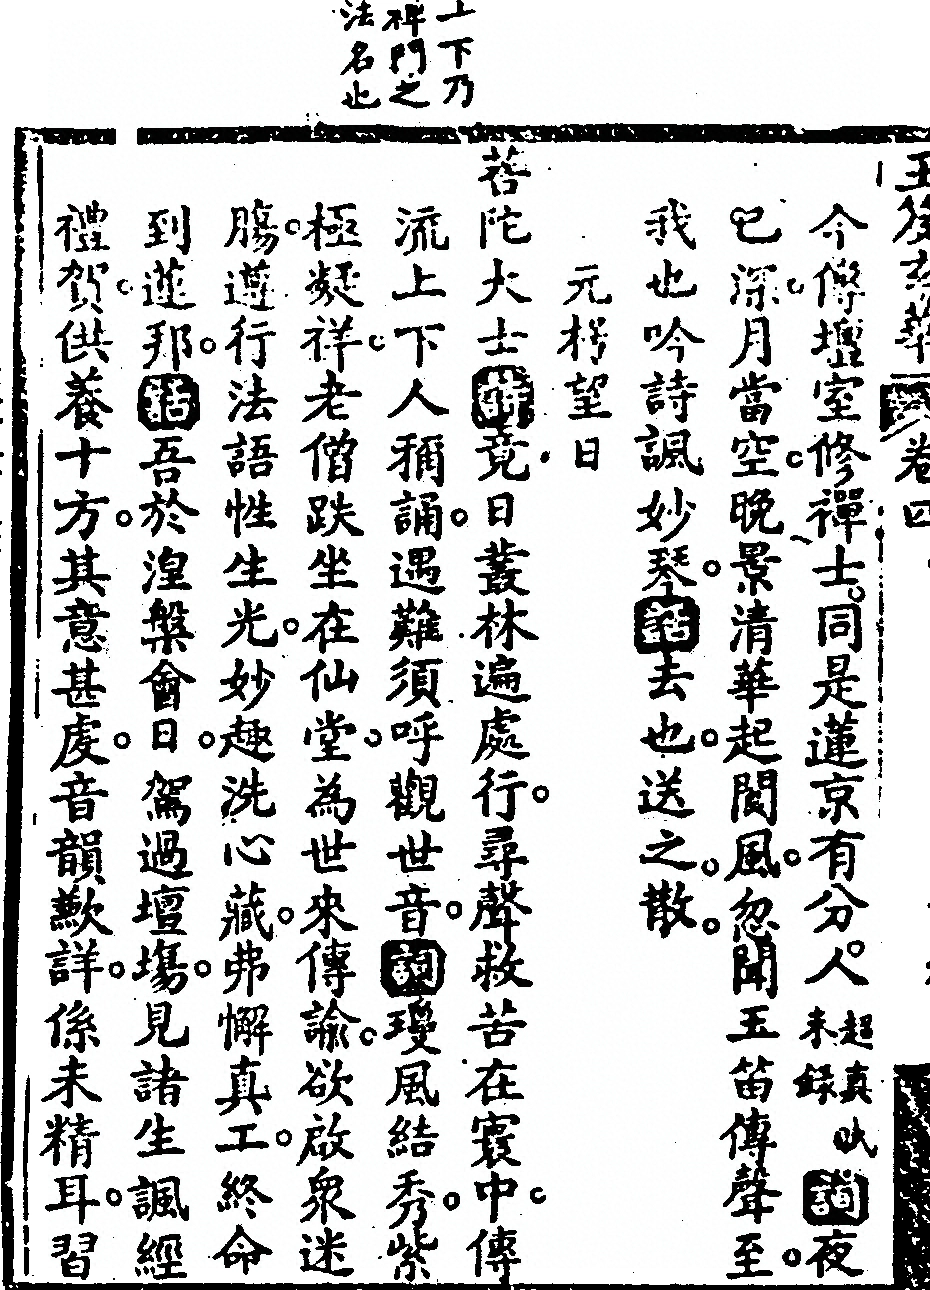 上下乃
禅門之
法名也
玉笈玄華 卷四
今僢壇室修禪士同是蓮京有分人 超真吼未録 詞 夜
已深月當空晚景清華起閬風忽聞玉笛傳聲至
我也吟詩諷妙琴 話 去也送之散
元枵望日
菩陀大士 詩 竟日叢林遍處行尋聲救苦在寰中傳
流上下人稱誦遇難須呼觀世音 詞 瓊風結秀紫
極凝祥老僧跌坐在仙堂為世來傳諭欲啟衆迷
腸遵行法語性生光妙趣洗心藏弗懈真工終命
到蓮邦 話 吾於湼槃會日駕過壇塲見諸生諷經
禮賀供養十方其意甚虔音韻歉詳係未精耳習